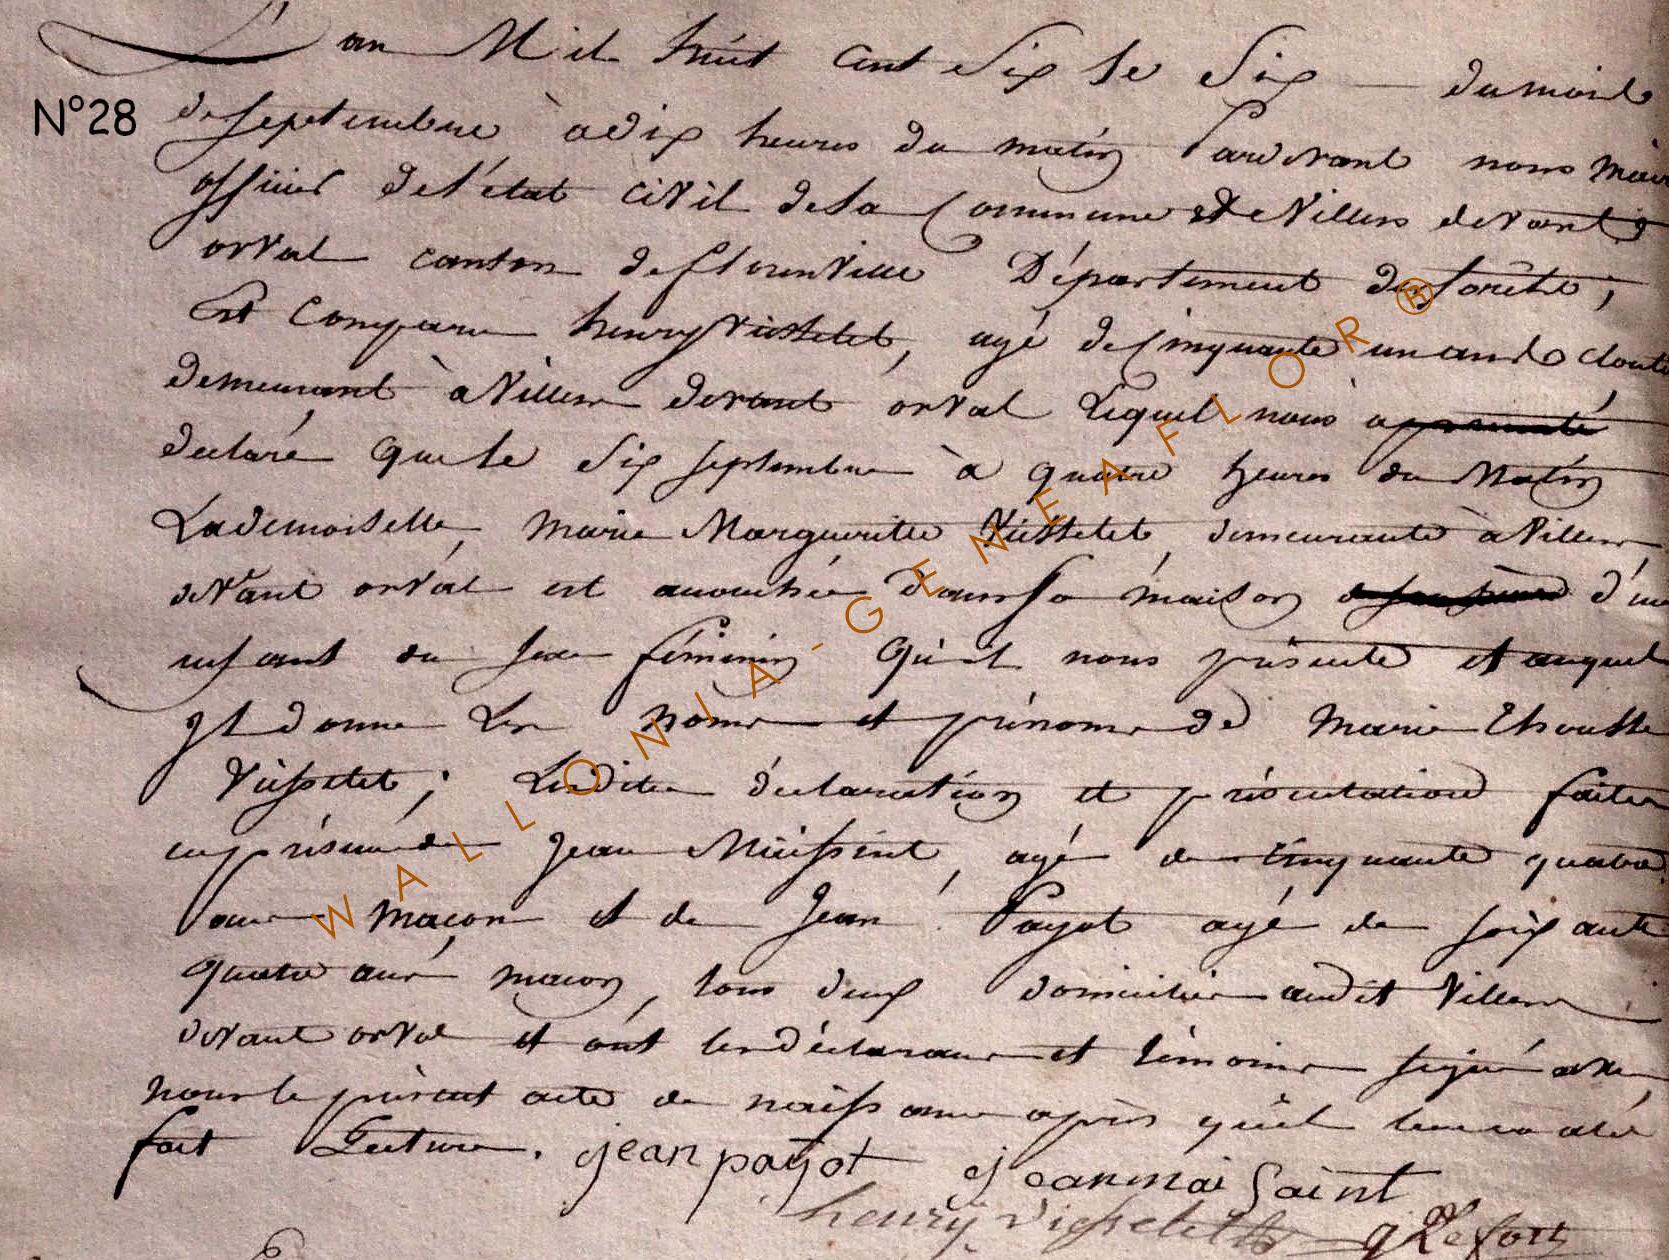 L'an Mil huit cent six le six du mois
N°28
de septembre à dix heures du matin Pardevant nous Maire
officier de l'état civil de la Commune de Villers devant
orval canton de florenville Département des forêts ;
Est Comparu henry Visselet, agé de Cinquante un ans cloutier
demeurant à Villers devant orval Lequel nous a presenté
declaré que le six septembre à quatre heures du Matin
La demoiselle Marie Margueritte Visselet, demeurante à Villers
devant orval est accouchée dans sa maison d'un
enfant du sexe féminin qu'il nous présente et auquel
il donne Les noms et prénoms de Marie
Visselet ; Lesdites déclaration et présentation faites
en présence de Jean Maissint, agé de cinquante quatre
ans Macon et de Jean Payot agé de soixante
quatre ans macon, tous deux domiciliés audit Villers
devant orval et ont les déclarant et témoins signé avec
nous le présent acte de naissance après qu'il leur en a été
fait Lecture. jean payot jean mai saint
henry visselet Lefort
WALLONIA-GENEAFLOR®